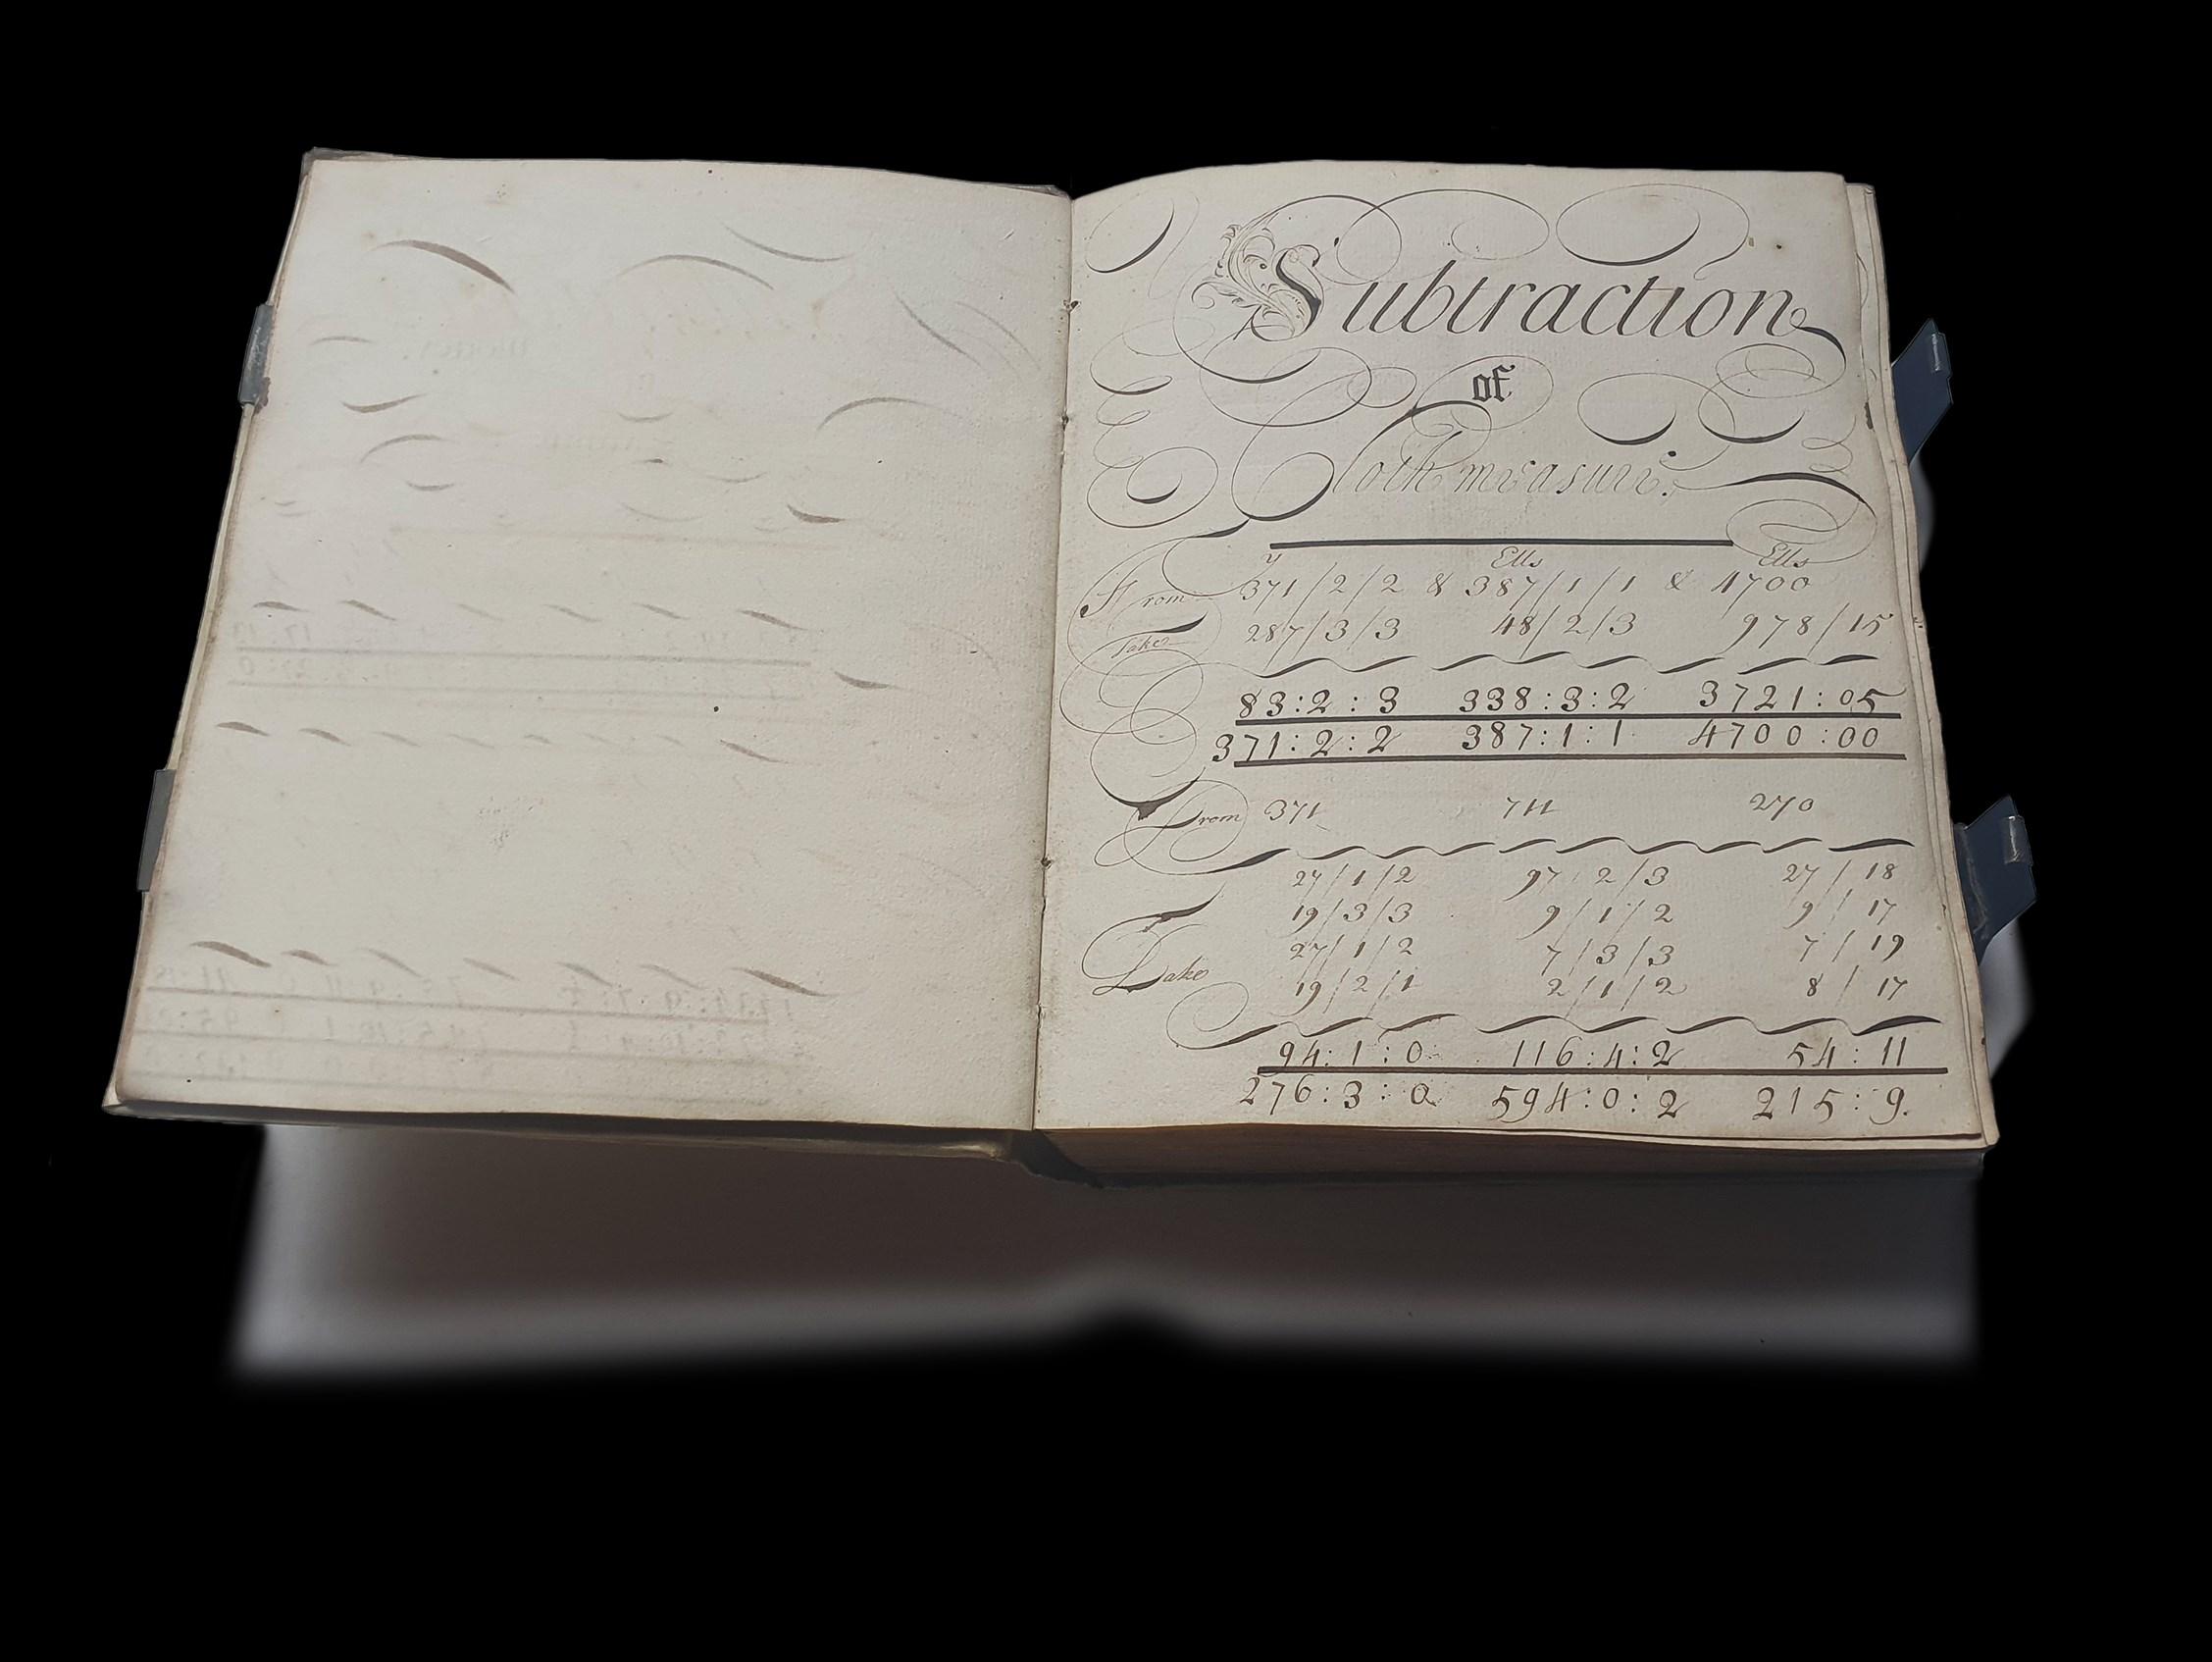 Subtraction
of
Cloth measure.
y Ells Ells
From 371/2/2 & 387/1/1 & 4700
Take 287/3/3 48/2/3 978/15
83:2:3 338:3:2 3721:05
371:2:2 387:1:1 4700:00
From 371 711 270
27/1/2 97/2/3 27/18
19/3/3 9/1/2 9/17
27/1/2 7/3/3 7/19
Take 19/2/1 2/1/2 8/17
94:1:0 116:4:2 54:11
276:3:0 594:0:2 215:9.